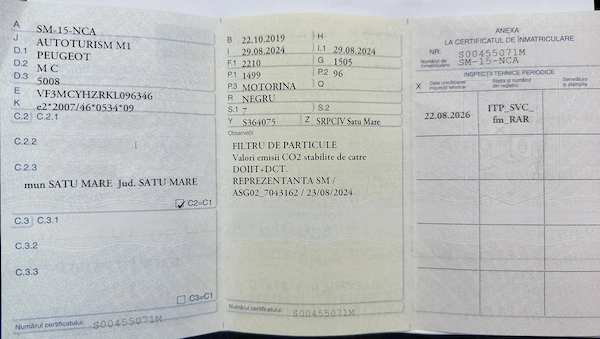 A SM-15-NCA
J AUTOTURISM M1
D.1 PEUGEOT
D.2 M C
D.3 5008
E VF3MCYHZRKL096346
K e2*2007/46*0534*09
C.2 C.2.1
C.2.2
C.2.3
mun SATU MARE Jud. SATU MARE
C2=C1
C.3 C.3.1
C.3.2
C.3.3
C3=C1
Numărul certificatului: S00455071M
B 22.10.2019 H
I 29.08.2024 I.1 29.08.2024
F.1 2210 G 1505
P.1 1499 P.2 96
P.3 MOTORINA Q
R NEGRU
S.1 7 S.2
Y S364075 Z SRPCIV Satu Mare
Observații
FILTRU DE PARTICULE
Valori emisii CO2 stabilite de catre
DOIIT+DCT.
REPREZENTANTA SM /
ASG02_7043162 / 23/08/2024
Numărul certificatului: S00455071M
ANEXA
LA CERTIFICATUL DE ÎNMATRICULARE
NR. S00455071M
Numărul de înmatriculare: SM-15-NCA
INSPECȚII TEHNICE PERIODICE
X Data următoarei inspecții tehnice Stația și numărul din registru Semnătura și ștampila
22.08.2026 ITP_SVC_
fm_RAR